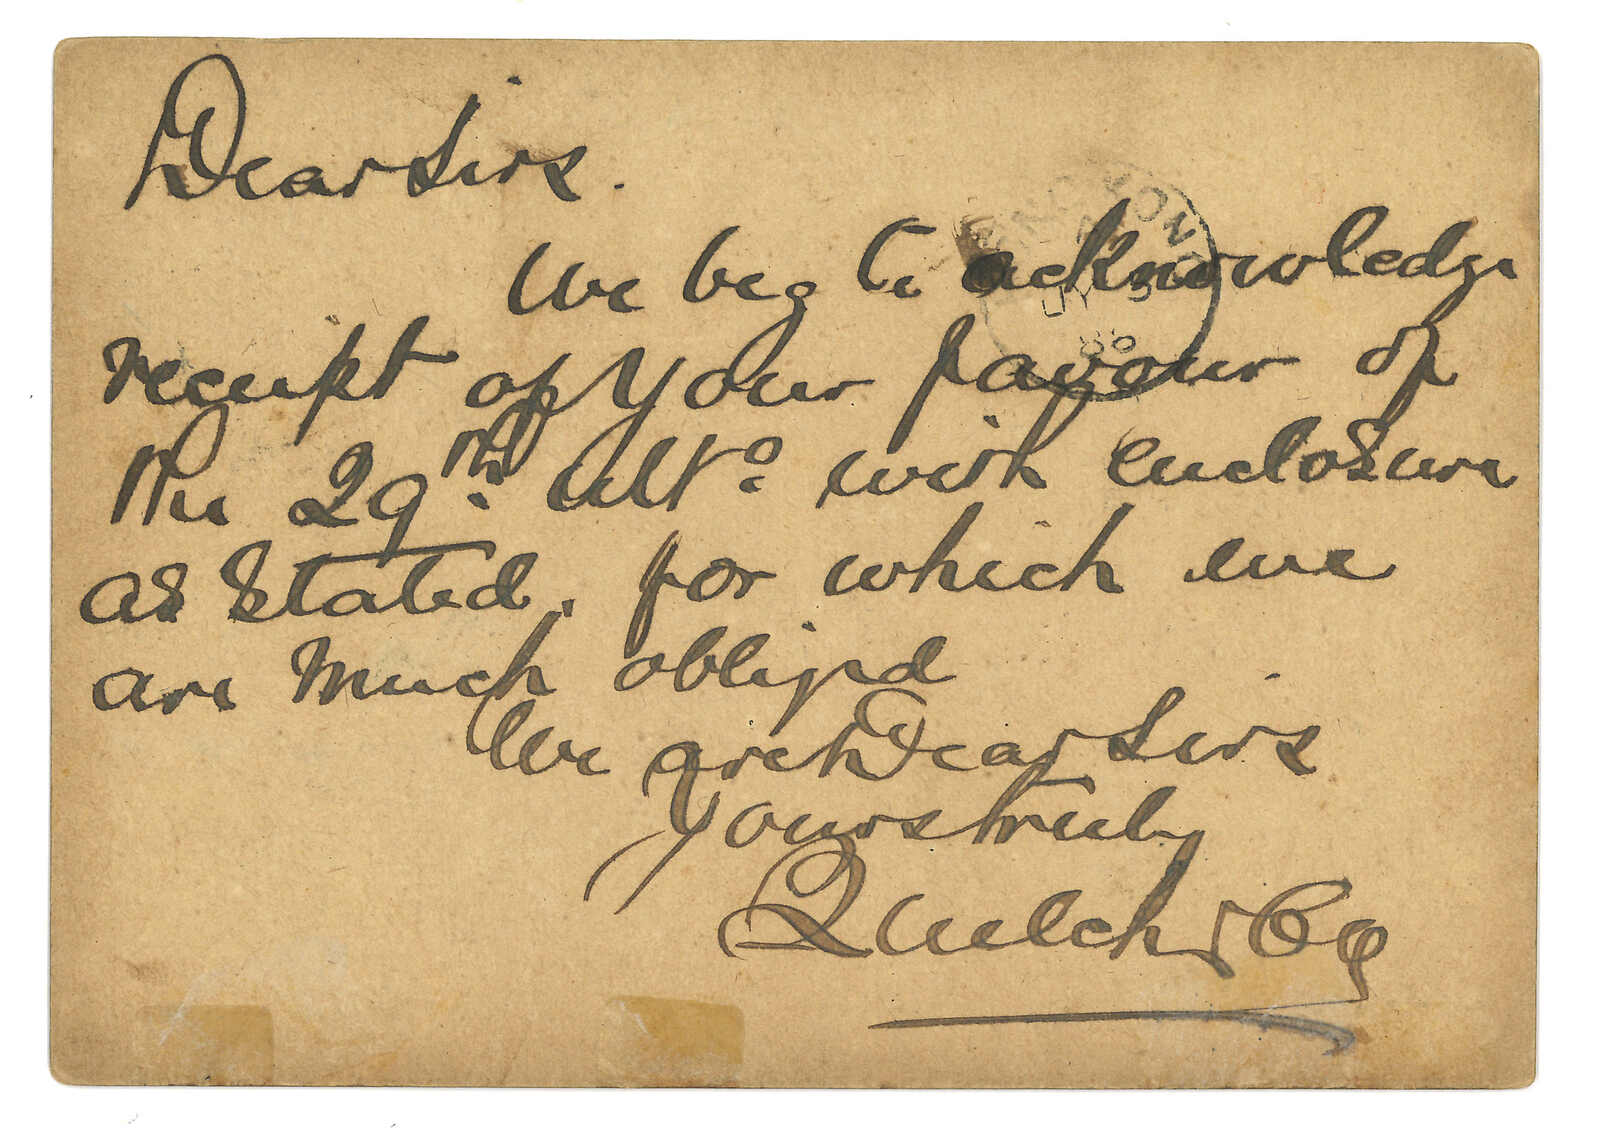 Dear Sirs.
We beg to acknowledge
receipt of your favour of
the 29th ulto. with enclosure
as stated, for which we
are much obliged
We are Dear Sirs
Yours truly
& Co